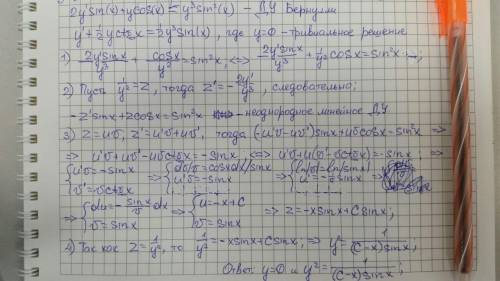 2y'sin(x)+ycos(x)=y³sin²(x) - ДУ Бернулли
y'+½yctgx=½y³sin(x), где y=0-тривиальное решение
1) 2y'sinx/y³ + cosx/y² = sin²x, <=> 2y'sinx/y³ + 1/y² cosx = sin²x ;
2) Пусть 1/y² = z, тогда z' = -2y'/y³, следовательно;
-z'sinx+zcosx=sin²x - неоднородное линейное ДУ
3) z=uv, z'=u'v+uv', тогда (-u'v-uv')sinx+uvcosx=sin²x =>
=> u'v+uv'-uvctgx=-sinx <=> u'v+u(v'-vctgx)=-sinx ; =>
{u'v=-sinx => {dv/v=cosxdx/sinx => {ln|v|=ln|sinx|
{v'=vctgx {u'v=-sinx
=> {du=-sinx/v dx => {u=-x+C => z=-xsinx+Csinx;
{v=sinx {v=sinx
4) Так как z=1/y², то 1/y²=-xsinx+Csinx; => y²=1/(C-x)sinx;
Ответ: y=0 и y²=1/(C-x)sinx;